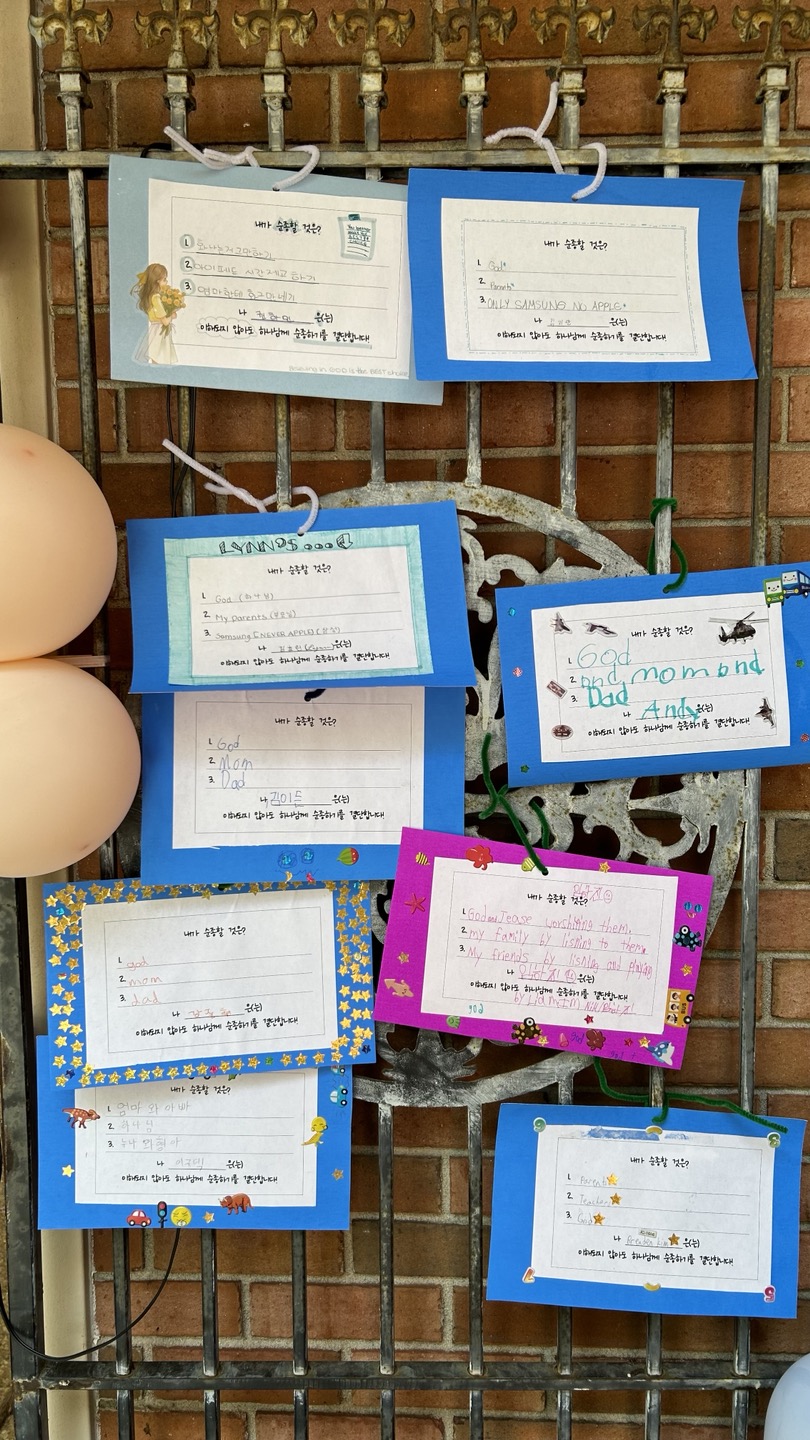 내가 순종할 것은?
1. 화나는거 그만하기
2. 아이패드 시간 하기
3. 엄마한테
나 은(는)
이해되지 않아도 하나님께 순종하기를 결단합니다!
in GOD is the BEST choice
내가 순종할 것은?
1. God
2. Parents
3. ONLY SAMSUNG NO APPLE
나 은(는)
이해되지 않아도 하나님께 순종하기를 결단합니다!
LYNN'S
내가 순종할 것은?
1. God (하나님)
2. My Parents (부모님)
3. Samsung (NEVER APPLE) (삼성)
나 (Lynn)은(는)
이해되지 않아도 하나님께 순종하기를 결단합니다!
내가 순종할 것은?
1. God
2. and mom and
3. Dad
나 Andy은(는)
이해되지 않아도 하나님께 순종하기를 결단합니다!
내가 순종할 것은?
1. God
2. Mom
3. Dad
나 김이든 은(는)
이해되지 않아도 하나님께 순종하기를 결단합니다!
내가 순종할 것은?
1. God worshiping them.
2. my family by lisning to them
3. My friends by lisning and playing
나 은(는)
이해되지 않아도 하나님께 순종하기를 결단합니다!
by
god
내가 순종할 것은?
1. god
2. mom
3. dad
나 은(는)
이해되지 않아도 하나님께 순종하기를 결단합니다!
내가 순종할 것은?
1. 엄마 와 아빠
2. 하나님
3. 누나 와 형아
나 은(는)
이해되지 않아도 하나님께 순종하기를 결단합니다!
내가 순종할 것은?
1. Parents
2. Teachers
3. God
나 은(는)
이해되지 않아도 하나님께 순종하기를 결단합니다!